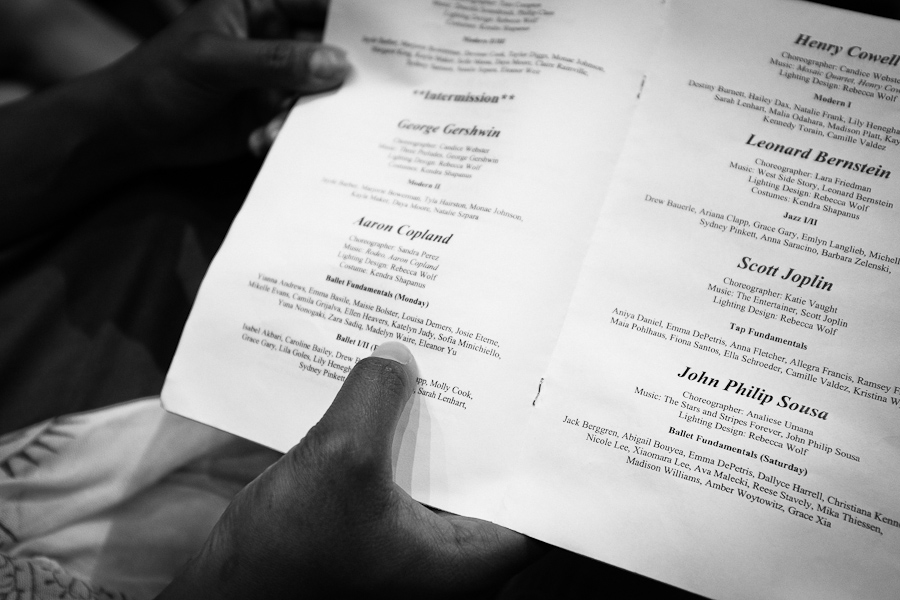 Lighting Design: Rebecca Wolf
Costumes: Kendra Shapanus
Modern I/II
**Intermission**
George Gershwin
Choreographer: Candice Webster
Music: Three Preludes, George Gershwin
Lighting Design: Rebecca Wolf
Costumes: Kendra Shapanus
Modern II
Tyla Hairston, Monae Johnson,
Kayla Maker, Daya Moore, Natalie Szpara
Aaron Copland
Choreographer: Sandra Perez
Music: Rodeo, Aaron Copland
Lighting Design: Rebecca Wolf
Costume: Kendra Shapanus
Ballet Fundamentals (Monday)
Vianna Andrews, Emma Basile, Maisie Bolster, Louisa Demers, Josie Eteme,
Mikulie Evans, Camila Grijalva, Ellen Heavers, Katelyn Judy, Sofia Minichiello,
Yuna Nomigaki, Zara Sadiq, Madelyn Waite, Eleanor Yu
Ballet I/II
Isabel Akbari, Caroline Bailey, Drew Molly Cook,
Grace Gary, Lila Goles, Lily Sarah Lenhart,
Sydney Pinkett
Henry Cowell
Choreographer: Candice Webste
Music: Mosaic Quartet, Henry Cow
Lighting Design: Rebecca Wolf
Modern I
Destiny Barnett, Hailey Dax, Natalie Frank, Lily Henegha
Sarah Lenhart, Malia Odahara, Madison Platt, Kay
Kennedy Torain, Camille Valdez
Leonard Bernstein
Choreographer: Lara Friedman
Music: West Side Story, Leonard Bernstein
Lighting Design: Rebecca Wolf
Costumes: Kendra Shapanus
Jazz I/II
Drew Bauerle, Ariana Clapp, Grace Gary, Emlyn Langlieb, Michell
Sydney Pinkett, Anna Saracino, Barbara Zelenski,
Scott Joplin
Choreographer: Katie Vaught
Music: The Entertainer, Scott Joplin
Lighting Design: Rebecca Wolf
Tap Fundamentals
Aniya Daniel, Emma DePetris, Anna Fletcher, Allegra Francis, Ramsey F
Maia Polhaus, Fiona Santos, Ella Schroeder, Camille Valdez, Kristina W
John Philip Sousa
Choreographer: Analiese Umana
Music: The Stars and Stripes Forever, John Philip Sousa
Lighting Design: Rebecca Wolf
Ballet Fundamentals (Saturday)
Jack Berggren, Abigail Bouyea, Emma DePetris, Dallyce Harrell, Christiana Kenn
Nicole Lee, Xiaomara Lee, Ava Malecki, Reese Stavely, Mika Thiessen,
Madison Williams, Amber Woytowitz, Grace Xia